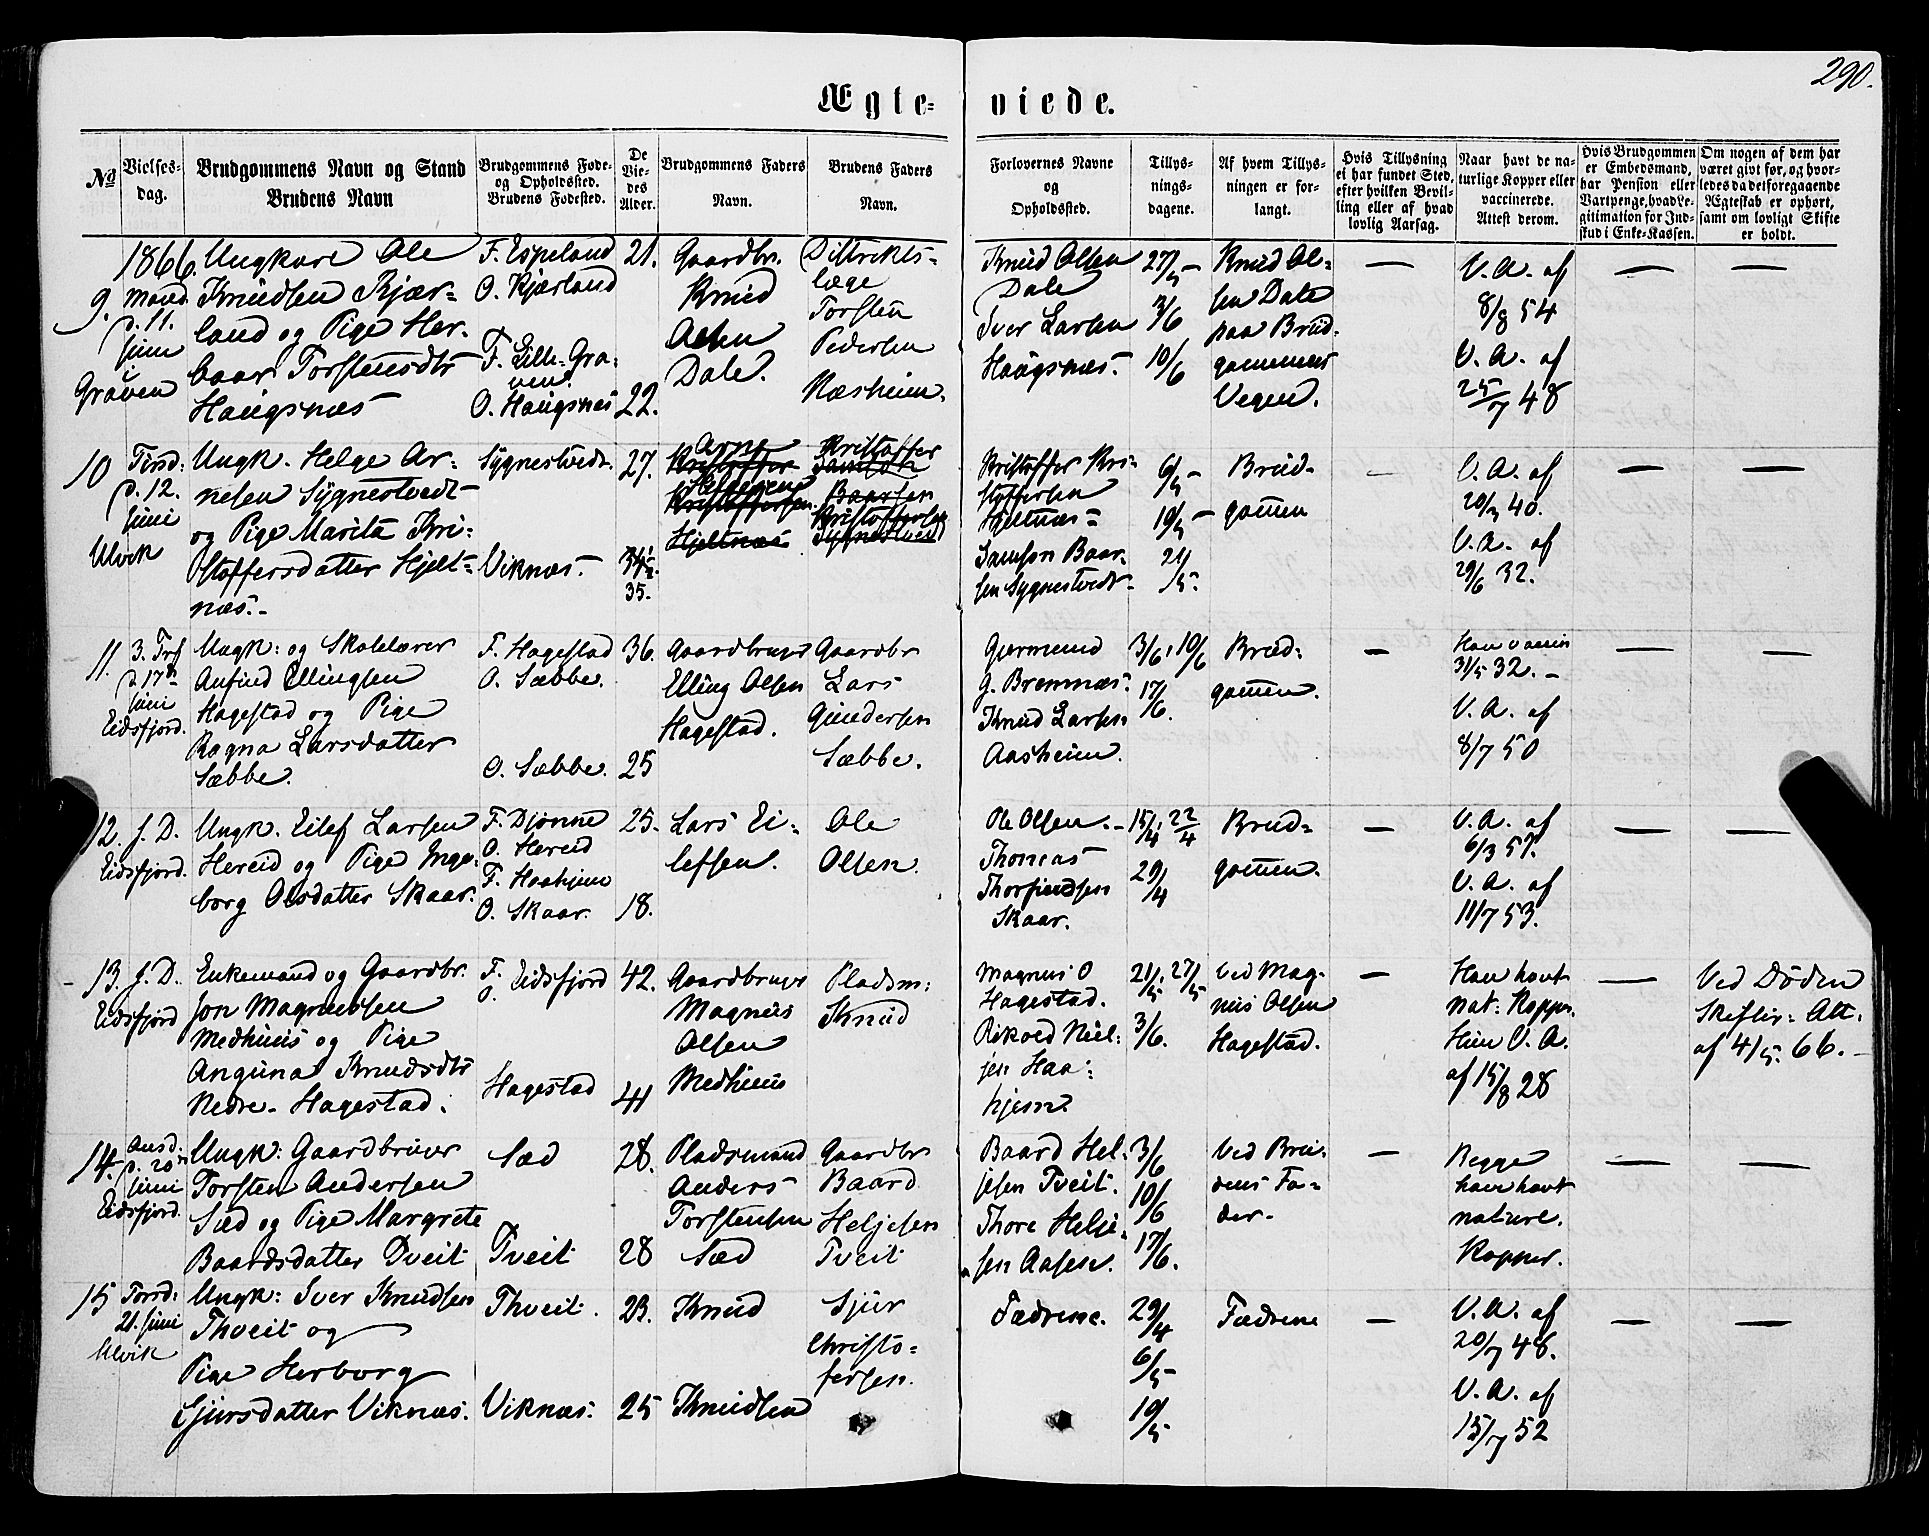 290.
Ægte=viede.
No
Vielses=dag.
Brudgommens Navn og Stand
Brudens Navn
Brudgommens Føde= og Opholdssted.
Brudens Fødested.
De Vie=des Alder.
Brudgommens Faders Navn.
Brudens Faders Navn.
Forlovernes Navne og Opholdssted.
Tillys=nings=dagene.
Af hvem Tillys=ningen er for=langt.
Hvis Tillysning ei har fundet Sted, efter hvilken Bevil=ling eller af hvad lovlig Aarsag.
Naar havt de na=turlige Kopper eller vaccinerede. Attest derom.
Hvis Brudgommen er Embedsmand, har Pension eller Vartpenge, hvad Le=gitimation for Ind=skud i Enke=Kassen.
Om nogen af dem har været givt før, og hvor=ledes da det foregaaende Ægteskab er ophørt, samt om lovligt Skifte er holdt.
1866.
9.
Mand.
d. 11.
Juni
i
Graven
Ungkarl Ole
Knudsen Kjær=
land og Pige Her=
baar Torstensdtr
Haugsnæs
F. Espeland
O. Kjærland
F. Lille-Gra=
ven.
O. Haugsnæs
21.
22.
Gaardbr.
Knud
Olsen
Dale.
Distrikts=
læge
Torsten
Pedersen
Næsheim.
Knud Olsen
Dale
Iver Larsen
Haugsnæs.
27/5
3/6
10/6
Knud Ol=
sen Dale
paa Brud=
gommens
Vegne.
V. A. af
8/8 54
V. A. af
25/7 48
10
Tirsd:
d. 12.
Juni
Ulvik
Ungk. Helge Ar=
nesen Sygnestvedt
og Pige Marita Kri=
stoffersdatter Hjelt=
næs.
Sygnestvedt.
Viknæs.
27.
34½.
35.
Arne
Kristoffer
Helgesen
Kristoffersen
Hjeltnæs
Kristoffer
Samson
Baarsen
Kristoffersen
Sygnestvedt
Kristoffer Kri=
stoffersen
Hjeltnæs
Samson Baar=
sen Sygnestvedt
6/5
10/5
21/5.
Brud=
gommen
V. A. af
20/7 40.
V. A. af
29/6 32.
11.
3. Trf
d 17de
Juni
Eidsfjord.
Ungk: og Skolelærer
Anfind Ellingsen
Hagestad og Pige
Ragna Larsdatter
Sæbbe.
F. Hagestad
O. Sæbbe.
O. Sæbbe.
36.
25
Gaardbruger
Elling Olsen
Hagestad.
Gaardbr
Lars
Gundersen
Sæbbe.
Guremund
G. Bremnæs.
Knud Larsen
Aasheim.
3/6, 10/6
17/6.
Brud=
gommen.
Han vaccin
31/5 32.
V. A. af
8/7 50
12.
s. D.
Eidsfjord.
Ungk. Eilef Larsen
Hereid og Pige Inge=
borg Olsdatter Skaar.
F. Djønne
O. Hereid
F. Haahjem
O. Skaar.
25.
18.
Lars Ei=
lefsen.
Ole
Olsen.
Ole Olsen.
Thomas
Thorfindsen
Skaar.
15/4, 22/4
29/4
Brud=
gommen.
V. A. af
6/3 57.
V. A. af
11/7 53.
13.
s. D.
Eidsfjord
Enkemand og Gaardbr.
Jon Magnussen
Medhuus og Pige
Anguna Knudsdtr
Nedre-Hagestad.
F.
O. Eidsfjord
Hagestad
42.
41
Gaardbruger
Magnus
Olsen
Medhuus
Pladsm:
Knud
Magnus O
Hagestad.
Rikold Niel=
sen Haa=
hjem
21/5, 27/5
3/6.
Ved Mag=
nus Olsen
Hagestad.
Han havt
nat: Kopper.
Hun V. A.
af 15/8 28
Ved Døden
Skiftev: Att.
af 4/5. 66.
14.
Onsd.
d. 20
Juni
Eidsfjord.
Ungk: Gaardbruger
Torsten Andersen
Sæd og Pige Margrete
Baardsdatter Tveit
Sæd
Tveit
28.
28
Pladsmand
Anders
Torstensen
Sæd
Gaardbr
Baard
Heljesen
Tveit
Baard Hel=
jesen Tveit.
Thore Helje=
sen Aasen.
3/6
10/6
17/6.
Ved Bru=
dens Fa=
der.
Begge
have havt
naturl.
Kopper.
15
Torsd:
21. Juni
Ulvik
Ungk: Iver Knudsen
Thveit og
Pige Herborg
Sjursdatter Viknæs.
Thveit.
Viknæs.
23.
25
Knud
Knudsen
Sjur
Christo=
fersen.
Fædrene.
29/4
6/5
10/5
Fædrene
V. A. af
20/7 48.
V. A. af
15/7 52